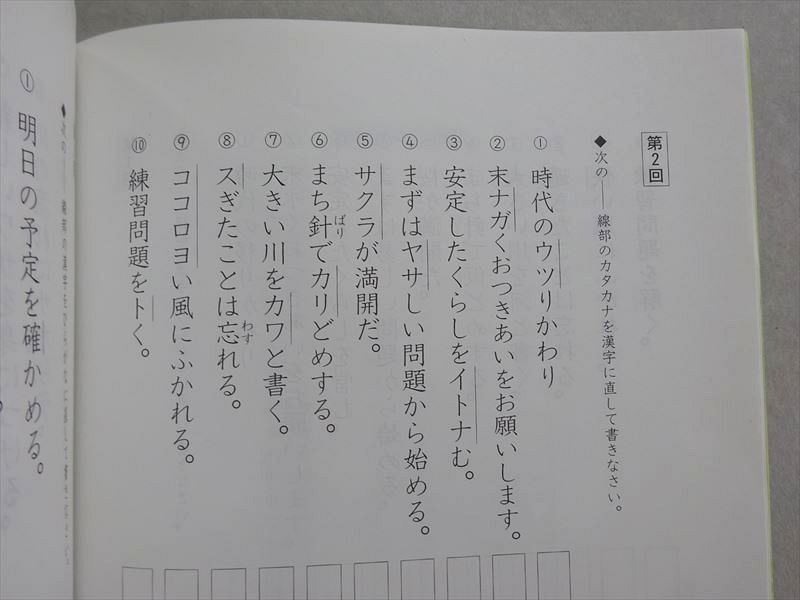 第2回
◆次の――線部のカタカナを漢字に直して書きなさい。
① 時代のウツりかわり
② 末ナガくおつきあいをお願いします。
③ 安定したくらしをイトナむ。
④ まずはヤサしい問題から始める。
⑤ サクラが満開だ。
⑥ まち針ばりでカリどめする。
⑦ 大きい川をカワと書く。
⑧ スぎたことは忘わすれる。
⑨ ココロヨい風にふかれる。
⑩ 練習問題をトく。
◆次の――線部の漢字を
① 明日の予定を確かめる。